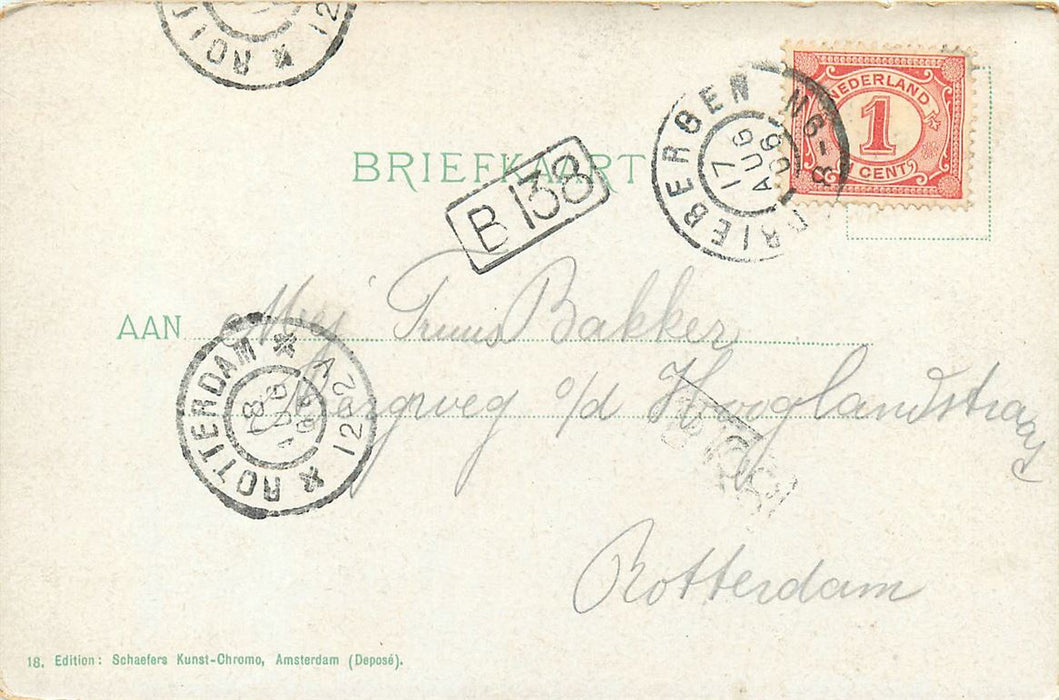 ROTT
12
NEDERLAND
1
CENT
DRIEBERGEN
17 AUG 06
8-9N
BRIEFKAART
B 138
AAN Mej Truus Bakker
Bergweg o/d Hooglandstraat
ROTTERDAM
18 AUG 06
12
Rotterdam
18. Edition: Schaefers Kunst-Chromo, Amsterdam (Deposé).